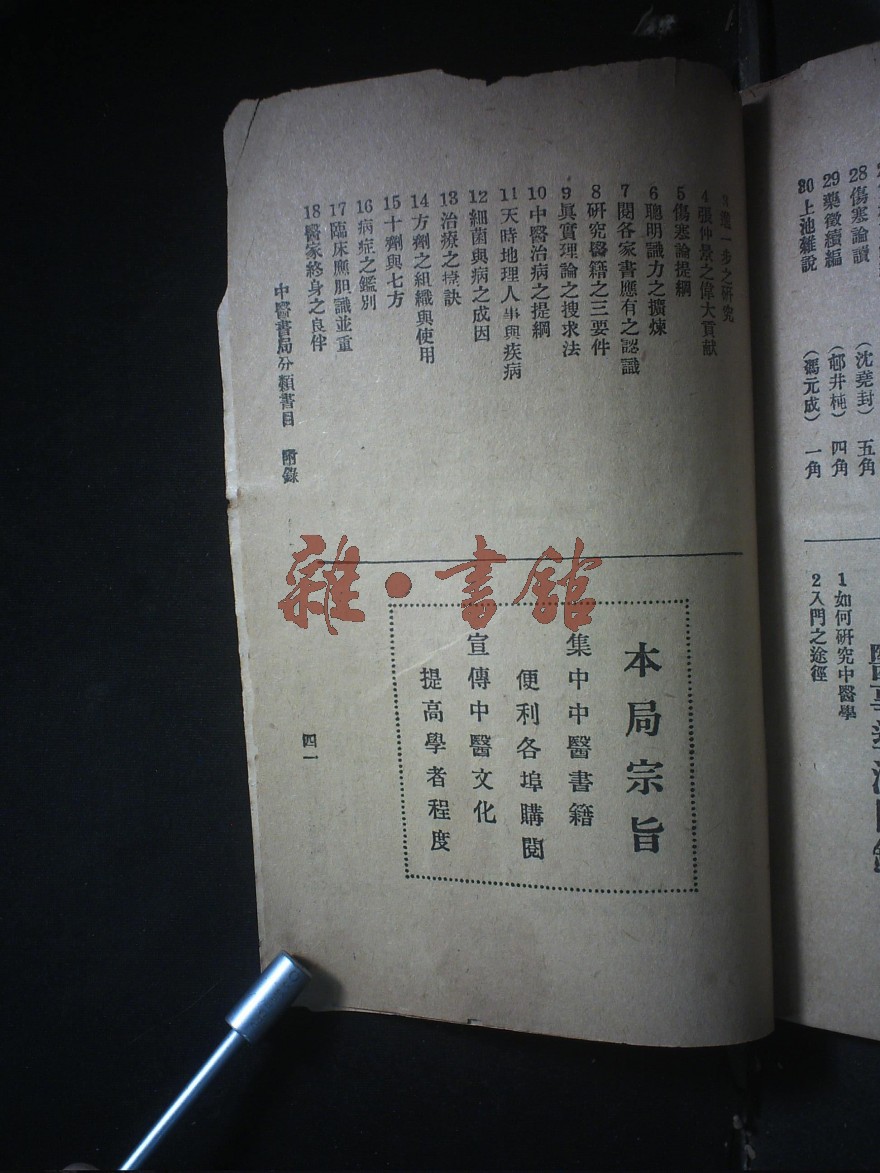 28 傷寒論讀 (沈堯封) 五角
29 藥徵續編 (邨井杶) 四角
30 上池雜說 (馮元成) 一角
1 如何研究中醫學
2 入門之途徑
3 進一步之研究
4 張仲景之偉大貢献
5 傷寒論提綱
6 聰明識力之擴煉
7 閱各家書應有之認識
8 研究醫籍之三要件
9 眞實理論之搜求法
10 中醫治病之提綱
11 天時地理人事與疾病
12 細菌與病之成因
13 治療之祕訣
14 方劑之組織與使用
15 十劑與七方
16 病症之鑑別
17 臨床應胆識並重
18 醫家終身之良伴
本局宗旨
集中中醫書籍
便利各埠購閱
宣傳中醫文化
提高學者程度
中醫書局分類書目 附錄
四一
雜·書館